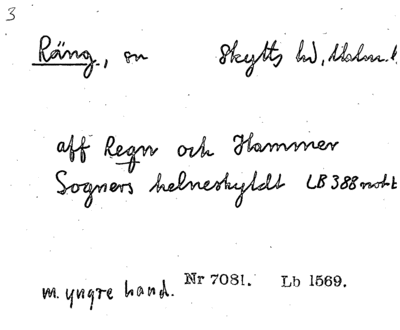 3
Räng, sn Skytts hd, Malm. l
aff Regn och Hammer
Sogners helneskyldt LB 388 not t
m. yngre hand. Nr 7081. Lb 1569.